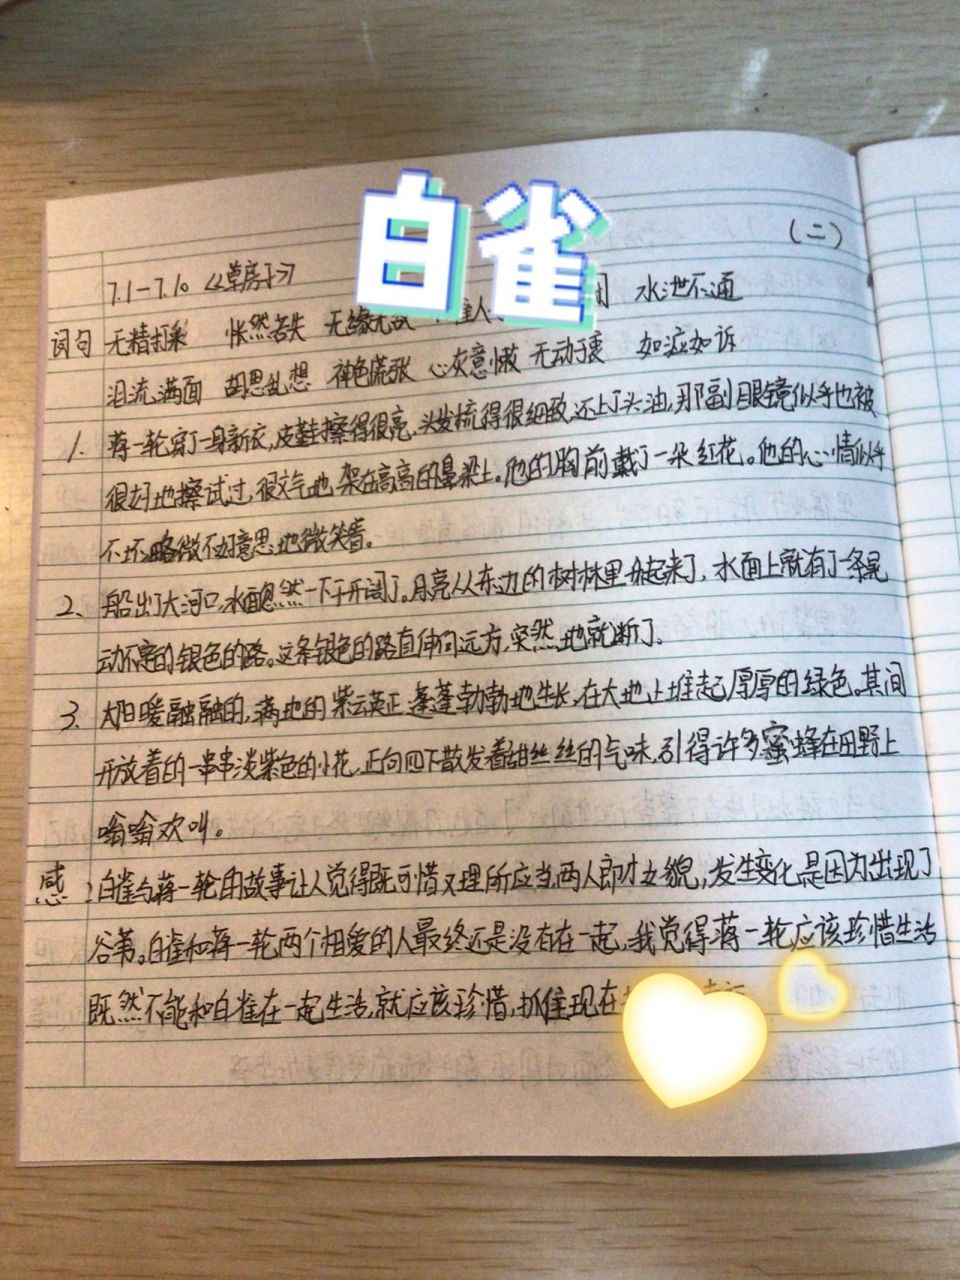 白雀
(二)
7.1-7.10 《草房子》
水泄不通
词句 无精打采 怅然若失 无缘无故
泪流满面 胡思乱想 神色慌张 心灰意懒 无动于衷 如泣如诉
1. 蒋一轮穿了一身新衣,皮鞋擦得很亮,头发梳得很细致,还上了头油,那副眼镜似乎也被
很好地擦试过,很文气地架在高高的鼻梁上。他的胸前戴了一朵红花。他的心情似乎
不坏,略微不好意思地微笑着。
2、船出了大河口,水面忽然一下子开阔了。月亮从东边的树林里升起来了,水面上就有了一条晃
动不定的银色的路。这条银色的路直伸向远方,突然地就断了。
3、太阳暖融融的,满地的紫云英正蓬蓬勃勃地生长,在大地上堆起厚厚的绿色。其间
开放着的一串串淡紫色的小花,正向四下散发着甜丝丝的气味,引得许多蜜蜂在田野上
嗡嗡欢叫。
感:白雀与蒋一轮的故事让人觉得既可惜又理所应当,两人郎才女貌,发生变化是因为出现了
谷苇。白雀和蒋一轮两个相爱的人最终还是没有在一起,我觉得蒋一轮应该珍惜生活
既然不能和白雀在一起生活,就应该珍惜,抓住现在